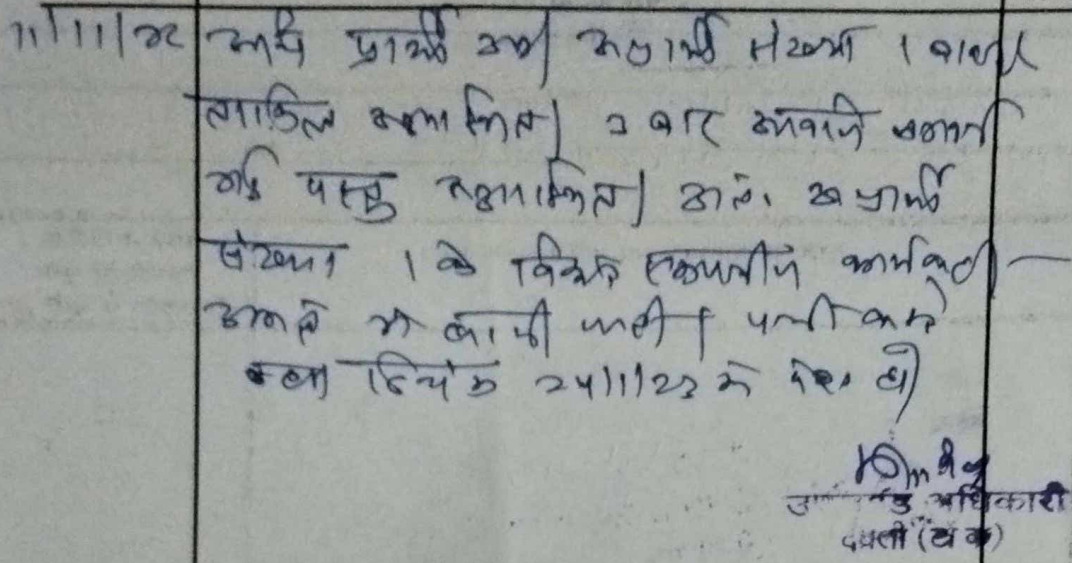 11/11/22 प्रार्थी अप्रार्थी संख्या 1 बावजूद
तामिल अनुपस्थित। 3 बार आवाजे लगवाई
गई परन्तु अनुपस्थित। अतः अप्रार्थी
संख्या 1 के विरुद्ध एकपक्षीय कार्यवाही —
अमल में लायी जाती है। पत्रावली वास्ते
दिनांक 24/1/23 को पेश हो।
उपखण्ड अधिकारी